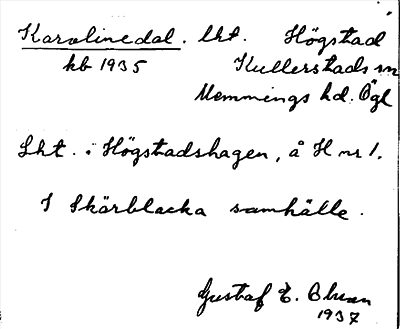 Karolinedal. lht. Högstad
kb 1935 Kullerstads sn
Memmings hd. Ögl
Lht. i Högstadshagen, å H nr 1.
I Skärblacka samhälle.
Gustaf E.
1937